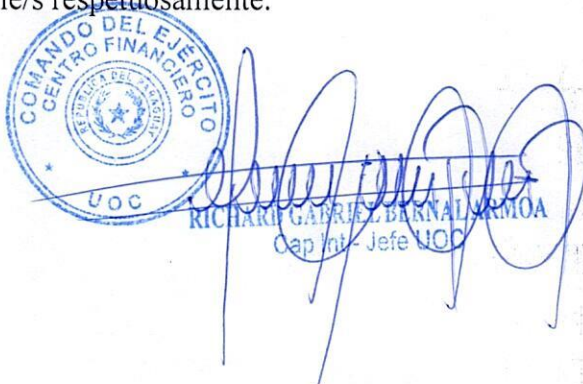 respetuosamente.
COMANDO DEL EJÉRCITO
CENTRO FINANCIERO
REPUBLICA DEL PARAGUAY
UOC
RICHARD GABRIEL BERNAL ARMOA
Cap Int - Jefe UOC